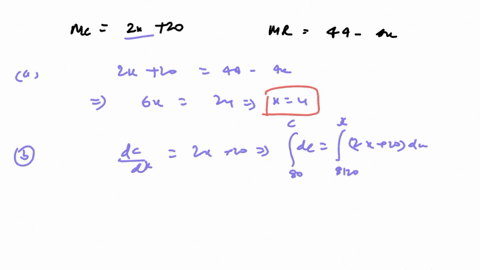 Mc = 2x + 20 MR = 44 - 4x
(a) 2x + 20 = 44 - 4x
=> 6x = 24 => x = 4
(b) dc/dx = 2x + 20 => ∫_{80}^{c} dc = ∫_{8120}^{x} (2x + 20) dx